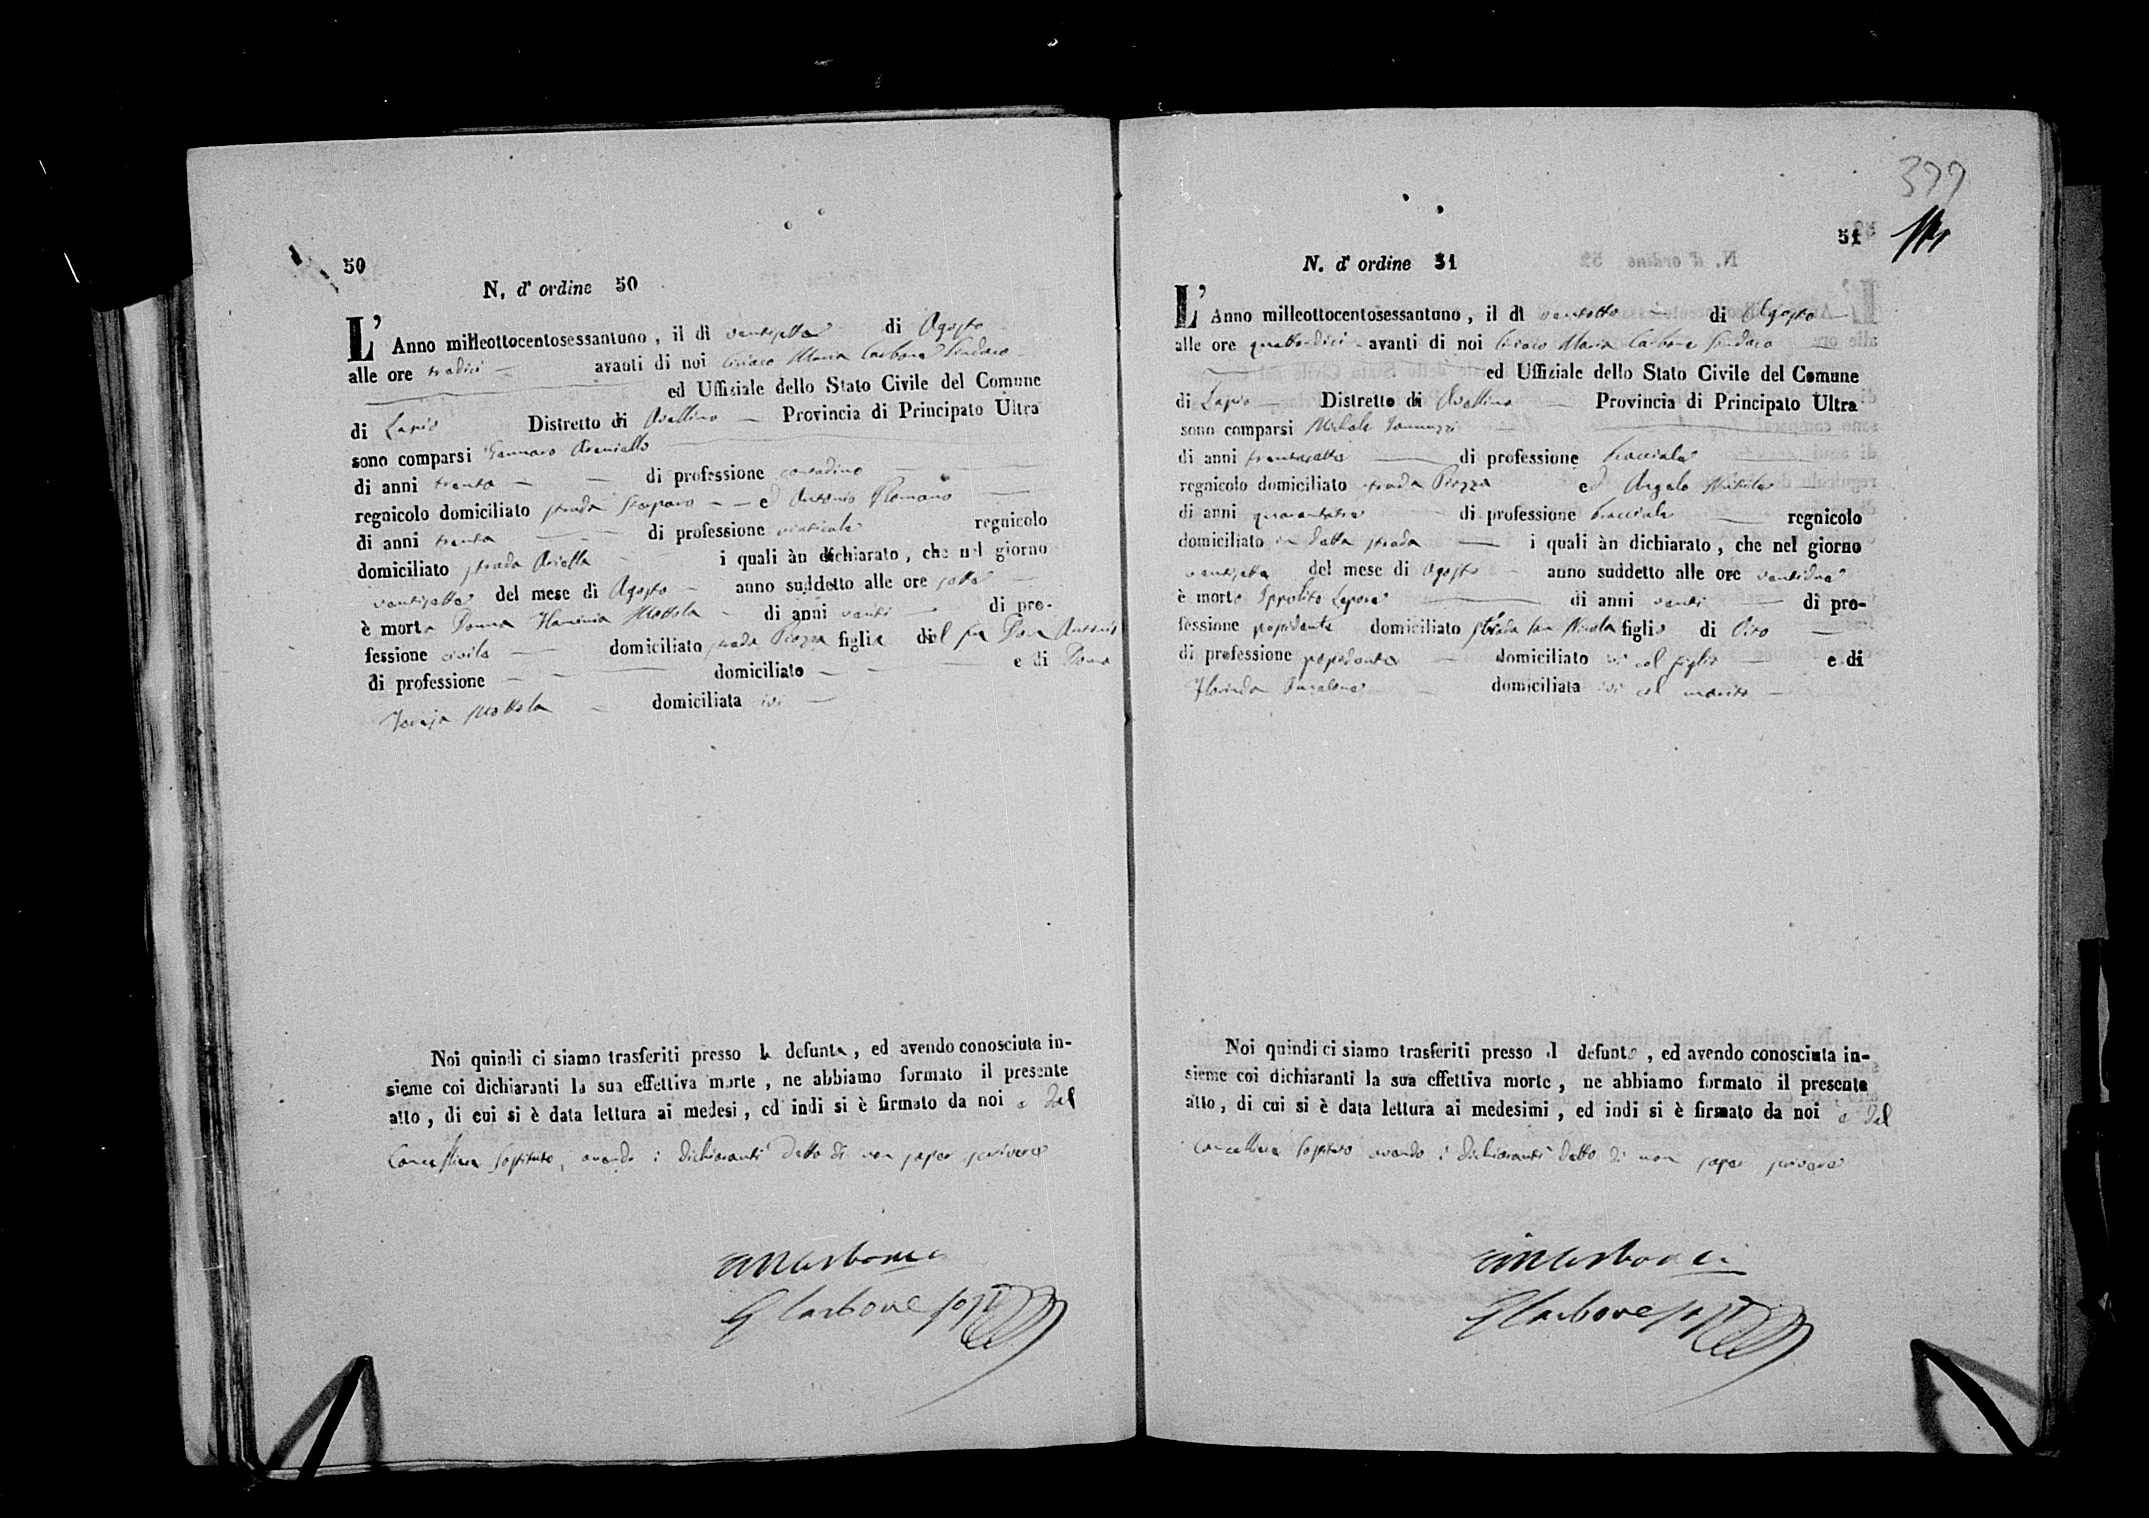 50
N. d' ordine 50
L' Anno milleottocentosessantuno, il dì ventisette di Agosto
alle ore tredici avanti di noi Ciriaco Maria Carbone Sindaco
ed Uffiziale dello Stato Civile del Comune
di Lapio Distretto di Avellino Provincia di Principato Ultra
sono comparsi Gennaro
di anni trenta di professione contadino
regnicolo domiciliato strada e Antonio Romano
di anni trenta di professione regnicolo
domiciliato strada i quali àn dichiarato, che nel giorno
ventisette del mese di Agosto anno suddetto alle ore sette
è morta Donna Flaminia Mottola di anni venti di pro-
fessione civile domiciliato strada Piazza figlia del fu Don Antonio
di professione domiciliato e di Donna
Mottola domiciliata ivi
Noi quindi ci siamo trasferiti presso la defunta, ed avendo conosciuta in-
sieme coi dichiaranti la sua effettiva morte, ne abbiamo formato il presente
atto, di cui si è data lettura ai medesi, ed indi si è firmato da noi e dal
Cancelliere sostituto, avendo i dichiaranti detto di non saper scrivere
CMCarbone
G Carbone sost
399
51
N. d' ordine 51
L' Anno milleottocentosessantuno, il dì ventotto di Agosto
alle ore quattordici avanti di noi Ciriaco Maria Carbone Sindaco
ed Uffiziale dello Stato Civile del Comune
di Lapio Distretto di Avellino Provincia di Principato Ultra
sono comparsi Michele Iannuzzi
di anni trentasette di professione bracciale
regnicolo domiciliato strada Piazza ed Angelo
di anni quarantatre di professione bracciale regnicolo
domiciliato in detta strada i quali àn dichiarato, che nel giorno
ventisette del mese di Agosto anno suddetto alle ore ventidue
è morto Ippolito Lepore di anni venti di pro-
fessione possidente domiciliato strada San Nicola figlio di Ciro
di professione possidente domiciliato ivi col figlio e di
Florinda domiciliata ivi col marito
Noi quindi ci siamo trasferiti presso il defunto, ed avendo conosciuta in-
sieme coi dichiaranti la sua effettiva morte, ne abbiamo formato il presente
atto, di cui si è data lettura ai medesimi, ed indi si è firmato da noi e dal
Cancelliere sostituto avendo i dichiaranti detto di non saper scrivere
CMCarbone
G Carbone sost